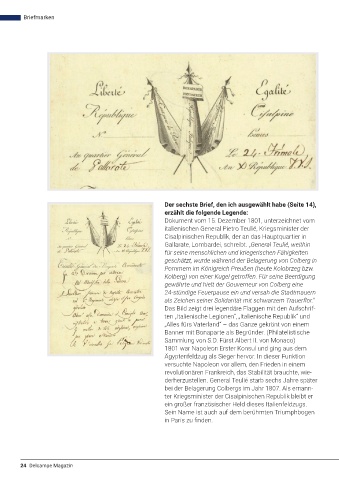 Briefmarken
Liberté
Egalité
BONAPARTE
République
Cisalpine
N°
heures
Au quartier Général
Le 24. Frimale
de Gallarate
An X République
Liberté
Egalité
Der sechste Brief, den ich ausgewählt habe (Seite 14),
erzählt die folgende Legende:
Dokument vom 15. Dezember 1801, unterzeichnet vom
italienischen General Pietro Teulié, Kriegsminister der
Cisalpinischen Republik, der an das Hauptquartier in
Gallarate, Lombardei, schreibt: „General Teulié, weithin
für seine menschlichen und kriegerischen Fähigkeiten
geschätzt, wurde während der Belagerung von Colberg in
Pommern im Königreich Preußen (heute Kolobrzeg bzw.
Kolberg) von einer Kugel getroffen. Für seine Beerdigung
gewährte und hielt der Gouverneur von Colberg eine
24-stündige Feuerpause ein und versah die Stadtmauern
als Zeichen seiner Solidarität mit schwarzem Trauerflor.“
Das Bild zeigt drei legendäre Flaggen mit den Aufschrif-
ten „Italienische Legionen“, „Italienische Republik“ und
„Alles fürs Vaterland“ – das Ganze gekrönt von einem
Banner mit Bonaparte als Begründer. (Philatelistische
Sammlung von S.D. Fürst Albert II. von Monaco)
1801 war Napoleon Erster Konsul und ging aus dem
Ägyptenfeldzug als Sieger hervor. In dieser Funktion
versuchte Napoleon vor allem, den Frieden in einem
revolutionären Frankreich, das Stabilität brauchte, wie-
derherzustellen. General Teulié starb sechs Jahre später
bei der Belagerung Colbergs im Jahr 1807. Als ernann-
ter Kriegsminister der Cisalpinischen Republik bleibt er
ein großer französischer Held dieses Italienfeldzugs.
Sein Name ist auch auf dem berühmten Triumphbogen
in Paris zu finden.
24 Delcampe Magazin